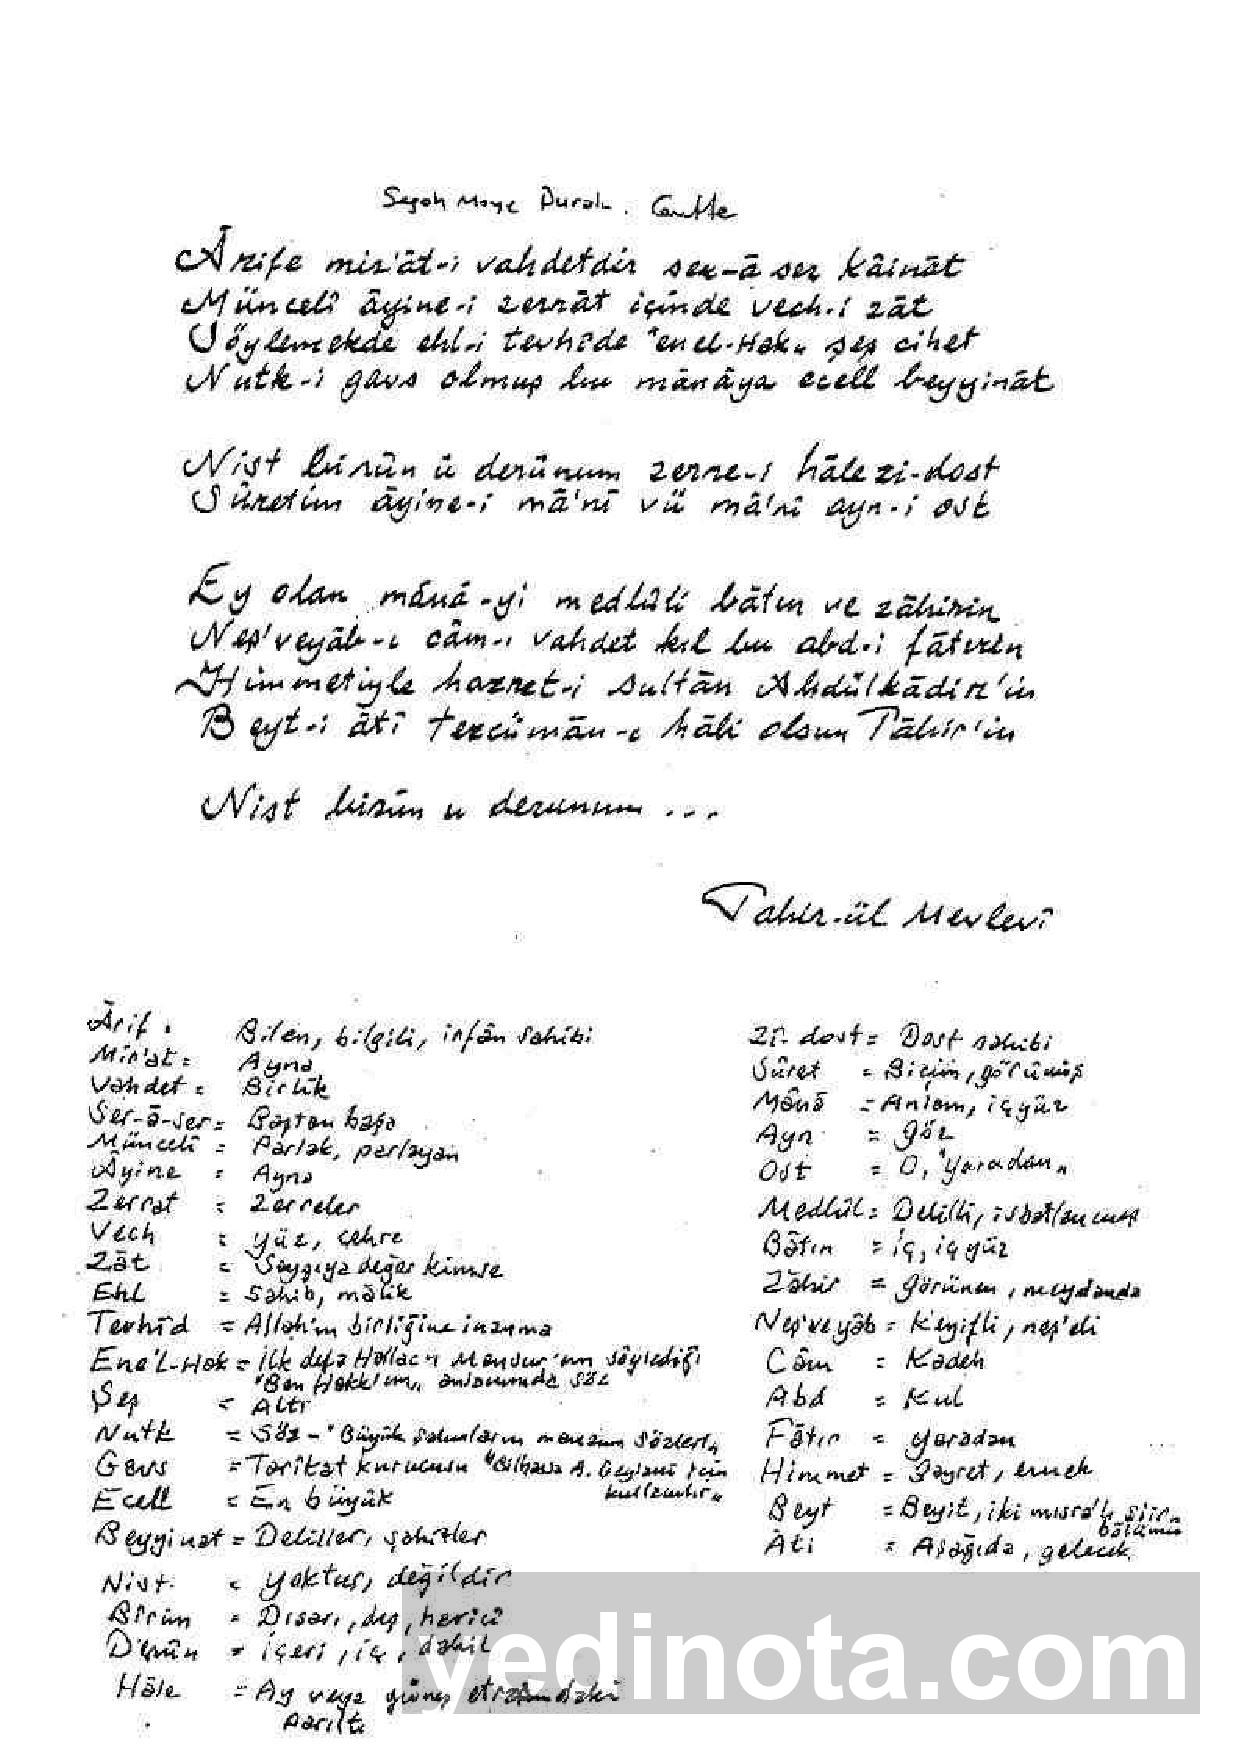 Segâh Maye Durak.
Ârife mir'ât-ı vahdetdir ser-â ser kâinât
Müncelî âyine-i zerrât içinde vech-i zât
Söylemekde ehl-i tevhîde "enel-Hak" şeş cihet
Nutk-i gavs olmuş bu mânâya ecell beyyinât
Nist birûn ü derûnum zerre-i hâle zi-dost
Sûretim âyine-i mâ'nî vü mâ'nî ayn-i ost
Ey olan mânâ-yi medlûli bâtın ve zâhirin
Neş'veyâb-ı câm-ı vahdet kıl bu abd-i fâtırın
Himmetiyle hazret-i Sultân Abdülkâdir'in
Beyt-i âtî tercümân-ı hâli olsun Tâhir'in
Nist birûn u derunum ...
Tahir-ül Mevlevî
Ârif : Bilen, bilgili, irfân sahibi
Mir'at = Ayna
Vahdet = Birlik
Ser-â-ser = Baştan başa
Müncelî = Parlak, parlayan
Âyine = Ayna
Zerrat = Zerreler
Vech = yüz, çehre
Zât = Saygıya değer kimse
Ehl = Sahib, mâlik
Tevhîd = Allah'ın birliğine inanma
Ene'l-Hak = İlk defa Hallac-ı Mansur'un söylediği
"Ben Hakk'ım" anlamında söz
Şeş = Altı
Nutk = Söz - "Büyük adamların manzum sözleri"
Gavs = Tarikat kurucusu "Bilhassa A. Geylani için
kullanılır"
Ecell = En büyük
Beyyinat = Deliller, şahitler
Nist = yoktur, değildir
Bîrûn = Dışarı, dış, haricî
Derûn = içeri, iç, dahil
Hâle = Ay veya güneş etrafındaki
parıltı
Zî-dost = Dost sahibi
Sûret = Biçim, görünüş
Mânâ = Anlam, içyüz
Ayn = göz
Ost = O, "yaradan"
Medlûl = Delilli, isbatlanmış
Bâtın = iç, içyüz
Zâhir = görünen, meydanda
Neş'veyâb = Keyifli, neş'eli
Câm = Kadeh
Abd = Kul
Fâtır = yaradan
Himmet = Gayret, emek
Beyt = Beyit, iki mısra'lı şiir
bölümü
Âti = Aşağıda, gelecek
yedinota.com